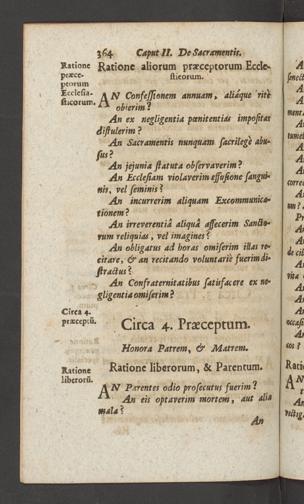 364 Caput II. De Sacramentis.
Ratione præce-ptorum Ecclesia-sticorum.
Ratione aliorum præceptorum Eccle-
siasticorum.
AN Confessionem annuam, aliáque ritè
obierim?
An ex negligentia pœnitentias impositas
distulerim?
An Sacramentis nunquam sacrilegè abu-
sus?
An jejunia statuta observaverim?
An Ecclesiam violaverim effusione sangui-
nis, vel seminis?
An incurrerim aliquam Excommunica-
tionem?
An irreverentiâ aliquâ affecerim Sancto-
rum reliquias, vel imagines?
An obligatus ad horas omiserim illas re-
citare, & an recitando voluntariè fuerim di-
stractus?
An Confraternitatibus satisfacere ex ne-
gligentia omiserim?
Circa 4.
præceptũ.
Circa 4. Præceptum.
Honora Patrem, & Matrem.
Ratione
liberorũ.
Ratione liberorum, & Parentum.
AN Parentes odio prosecutus fuerim?
An eis optaverim mortem, aut alia
mala?
An